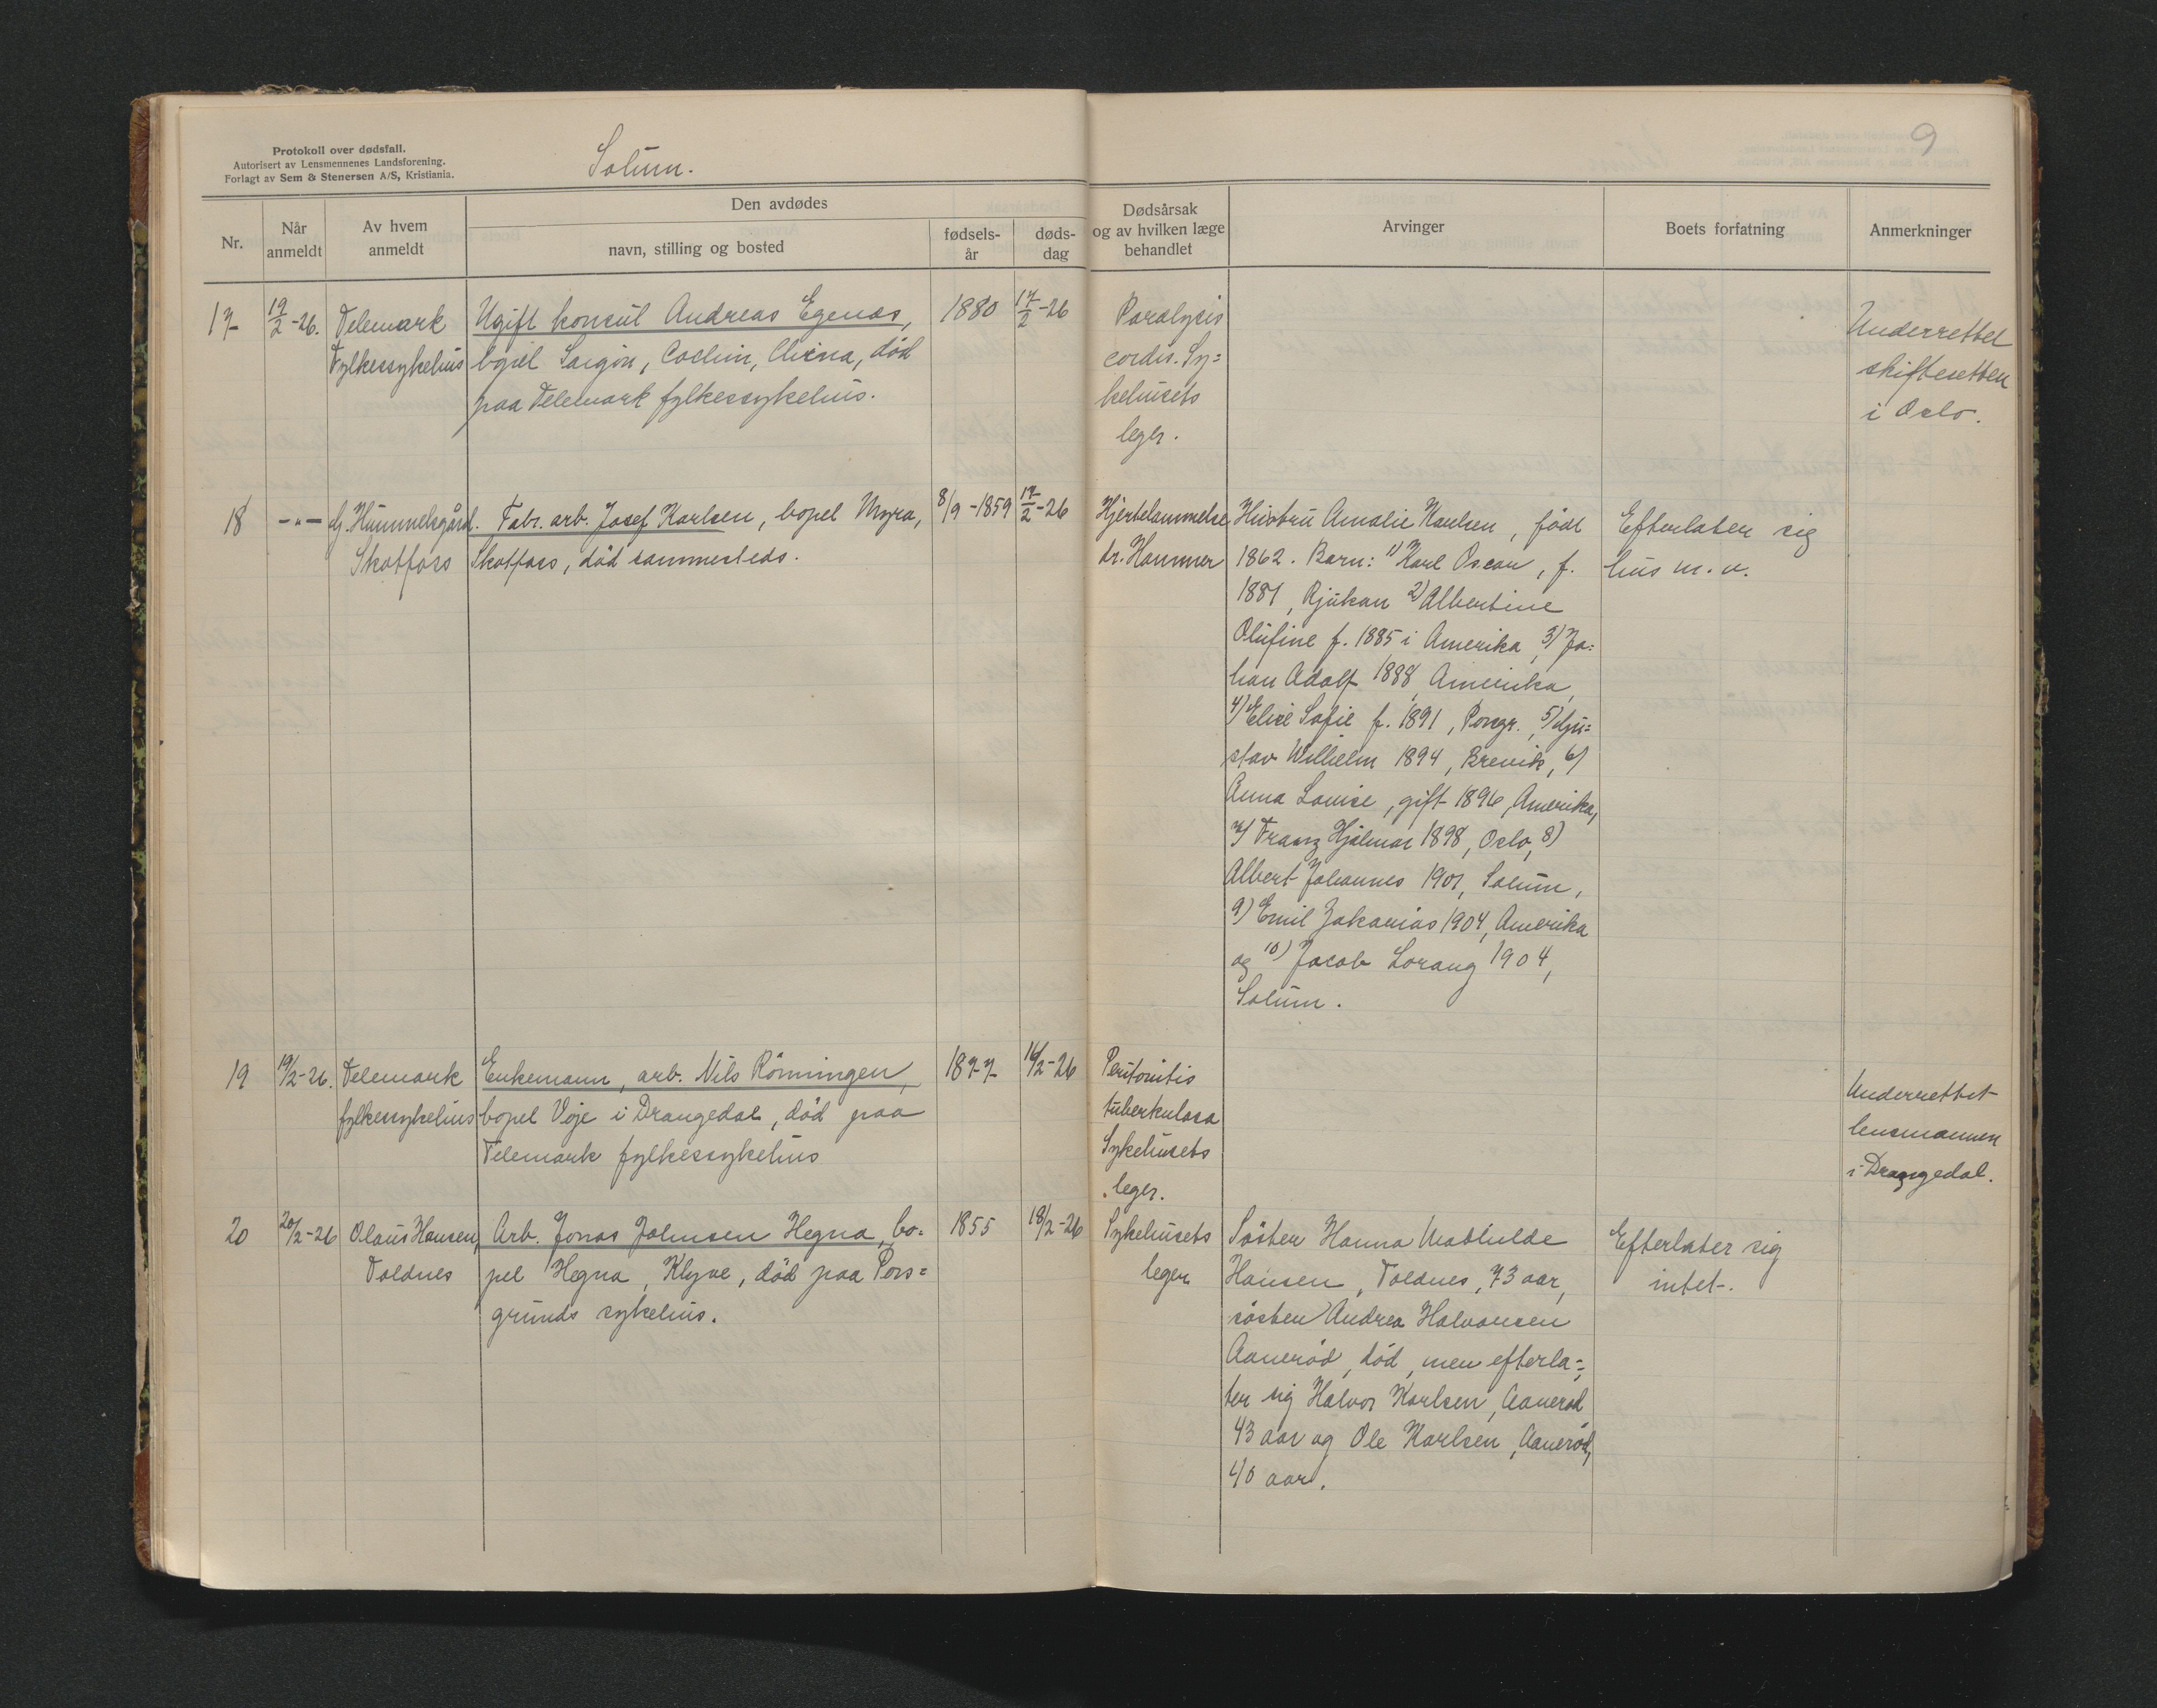 Protokoll over dødsfall.
Autorisert av Lensmennenes Landsforening.
Forlagt av Sem & Stenersen A/S, Kristiania.
Solum.
9
Nr.
Når anmeldt
Av hvem anmeldt
Den avdødes
navn, stilling og bosted
fødsels-år
døds-dag
Dødsårsak og av hvilken læge behandlet
Arvinger
Boets forfatning
Anmerkninger
17
19/2-26.
Telemark
Fylkessykehus
Ugift konsul Andreas Egenæs,
bopel Saigon, Cochin, China, død
paa Telemark fylkessykehus.
1880
17/2-26
Paralysis
cordis. Sy=
kehusets
leger.
Underrettet
skifteretten
i Oslo.
18
-"-
G. Hummelsgård.
Skotfoss
Fabr. arb. Josef Karlsen, bopel Myra,
Skotfoss, død sammesteds.
8/9-1859
17/2-26
Hjertelammelse
dr. Hammer
Hustru Amalie Karlsen, født
1862. Barn: 1) Karl Oscar, f.
1881, Rjukan 2) Albertine
Olufine f. 1885 i Amerika, 3) Jo=
han Adolf 1888, Amerika,
4) Elise Sofie f. 1891, Porsgr., 5) Gu=
stav Wilhelm 1894, Brevik, 6)
Anna Louise, gift 1896, Amerika,
7) Franz Hjalmar 1898, Oslo, 8)
Albert Johannes 1901, Solum,
9) Emil Zakarias 1904, Amerika
og 10) Jacob Lorang 1904,
Solum.
Efterlater sig
hus m. v.
19
19/2-26.
Telemark
fylkessykehus
Enkemann, arb. Nils Rönningen,
bopel Voje i Drangedal, død paa
Telemark fylkessykehus
1877
16/2-26
Peritonitis
tuberkulosa
Sykehusets
leger.
Underrettet
lensmannen
i Drangedal.
20
20/2-26
Olaus Hansen,
Toldnes
Arb. Jonas Johnsen Hegna, bo=
pel Hegna, Klyve, død paa Pors=
grunds sykehus.
1855
18/2-26
Sykehusets
leger
Söster Hanna Mathilde
Hansen, Toldnes, 73 aar,
söster Andrea Halvorsen
Aanerød, død, men efterla=
ter sig Halvor Karlsen, Aanerød
43 aar og Ole Karlsen, Aanerød,
40 aar.
Efterlater sig
intet.